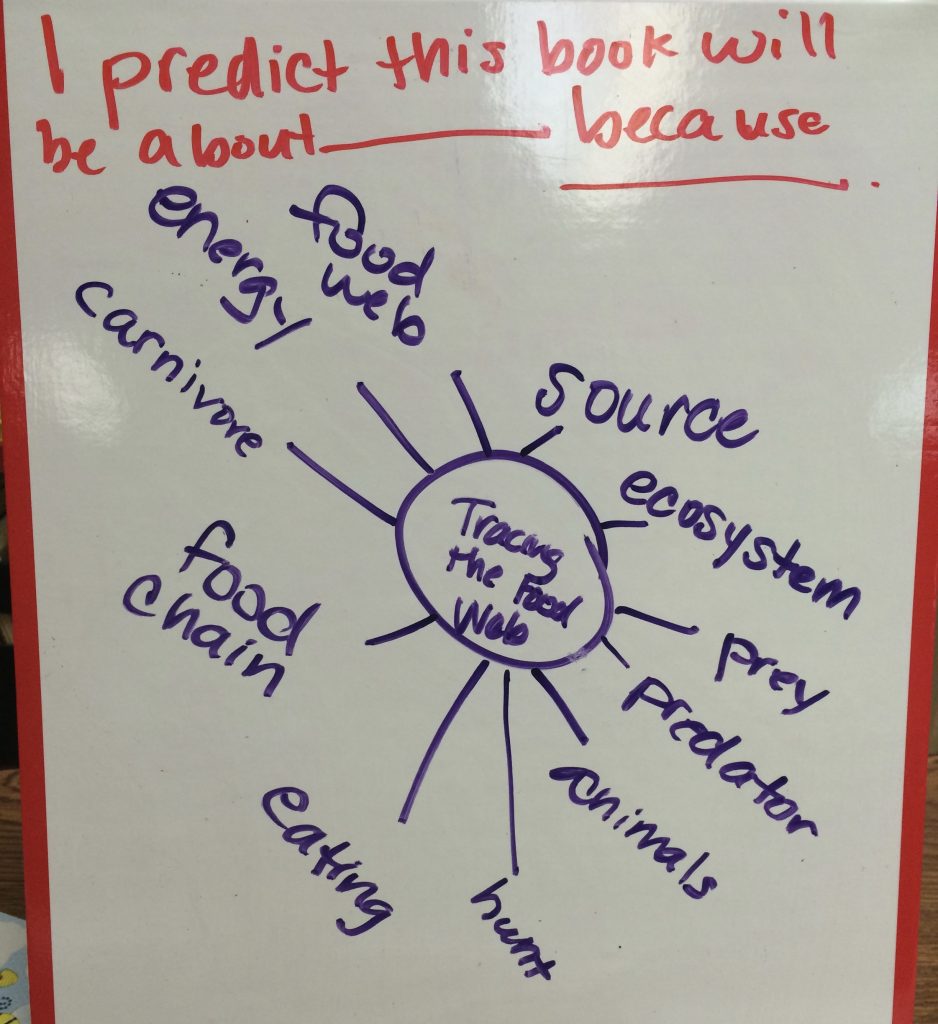 I predict this book will
be about ________ because
________.
food
web
energy
carnivore
source
ecosystem
Tracing
the Food
Web
food
chain
prey
predator
animals
eating
hunt